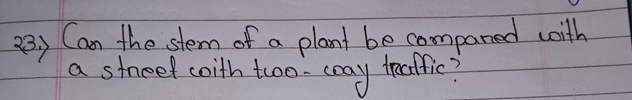 23.) Can the stem of a plant be compared with
a street with two-way traffic?